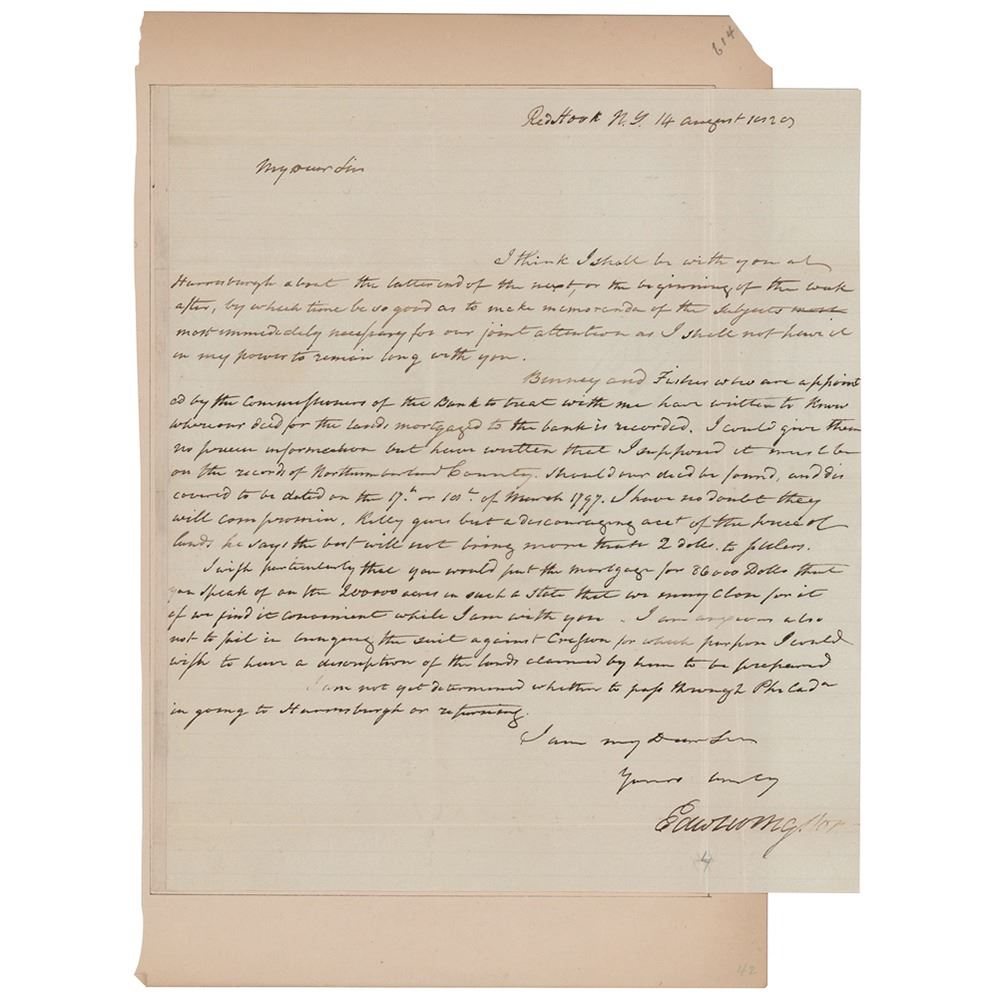 614
Red Hook N.Y. 14 august 1829
My Dear Sir
I think I shall be with you at
Harrisburgh about the latter end of the next, or the beginning of the week
after, by which time be so good as to make memoranda of the subjects most
most immediately necessary for our joint attention as I shall not have it
in my power to remain long with you.
Binney and Fisher who are appoint
ed by the Commissioners of the Bank to treat with me have written to know
where our deed for the lands mortgaged to the bank is recorded. I could give them
no precise information but have written that I supposed it must be
on the records of Northumberland County. Should our deed be found, and dis
covered to be dated on the 17th or 18th of March 1797. I have no doubt they
will compromise. Kelly gives but a discouraging acct of the price of
lands, he says the best will not bring more than 2 dolls. to settlers.
I wish particularly that you would put the mortgage for 36000 Dolls that
you speak of on the 200000 acres in such a state that we may close for it
if we find it convenient while I am with you. I am anxious also
not to fail in arranging the suit against Cresson for which purpose I could
wish to have a description of the lands claimed by him to be prepared
I am not yet determined whether to pass through Philada
in going to Harrisburgh or returning.
I am my Dear Sir
Yours truly
Edw Livingston
42